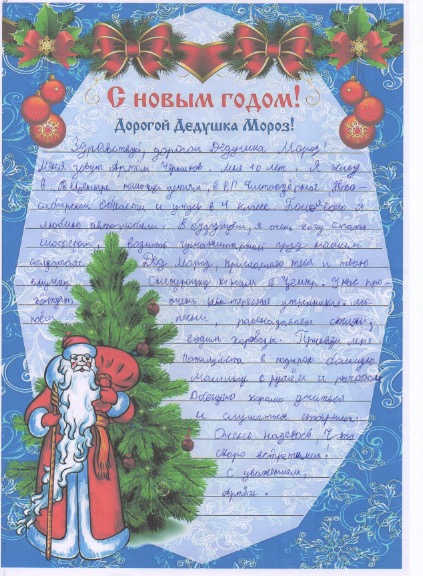 С новым годом!
Дорогой Дедушка Мороз!
Здравствуй, дорогой Дедушка Мороз!
Меня зовут Артём, мне 10 лет, я живу
в "Центре помощи детям", в Р.П. Чистоозёрное Ново-
сибирской области и учусь в 4 классе. Больше всего я
люблю автомобили. В будущем, я очень хочу стать
и возить гуманитарный груз нашим
солдатам. Дед Мороз, приглашаю тебя и твою
внучку Снегурочку к нам в Центр. У нас про-
ходят очень интересные утренники. Мы
поём песни, рассказываем стихи,
водим хороводы. Привези мне
пожалуйста в подарок большую
машинку с рулём и
Обещаю хорошо учиться
и слушаться старших.
Очень надеюсь, что
скоро встретимся.
С уважением,
Артём.